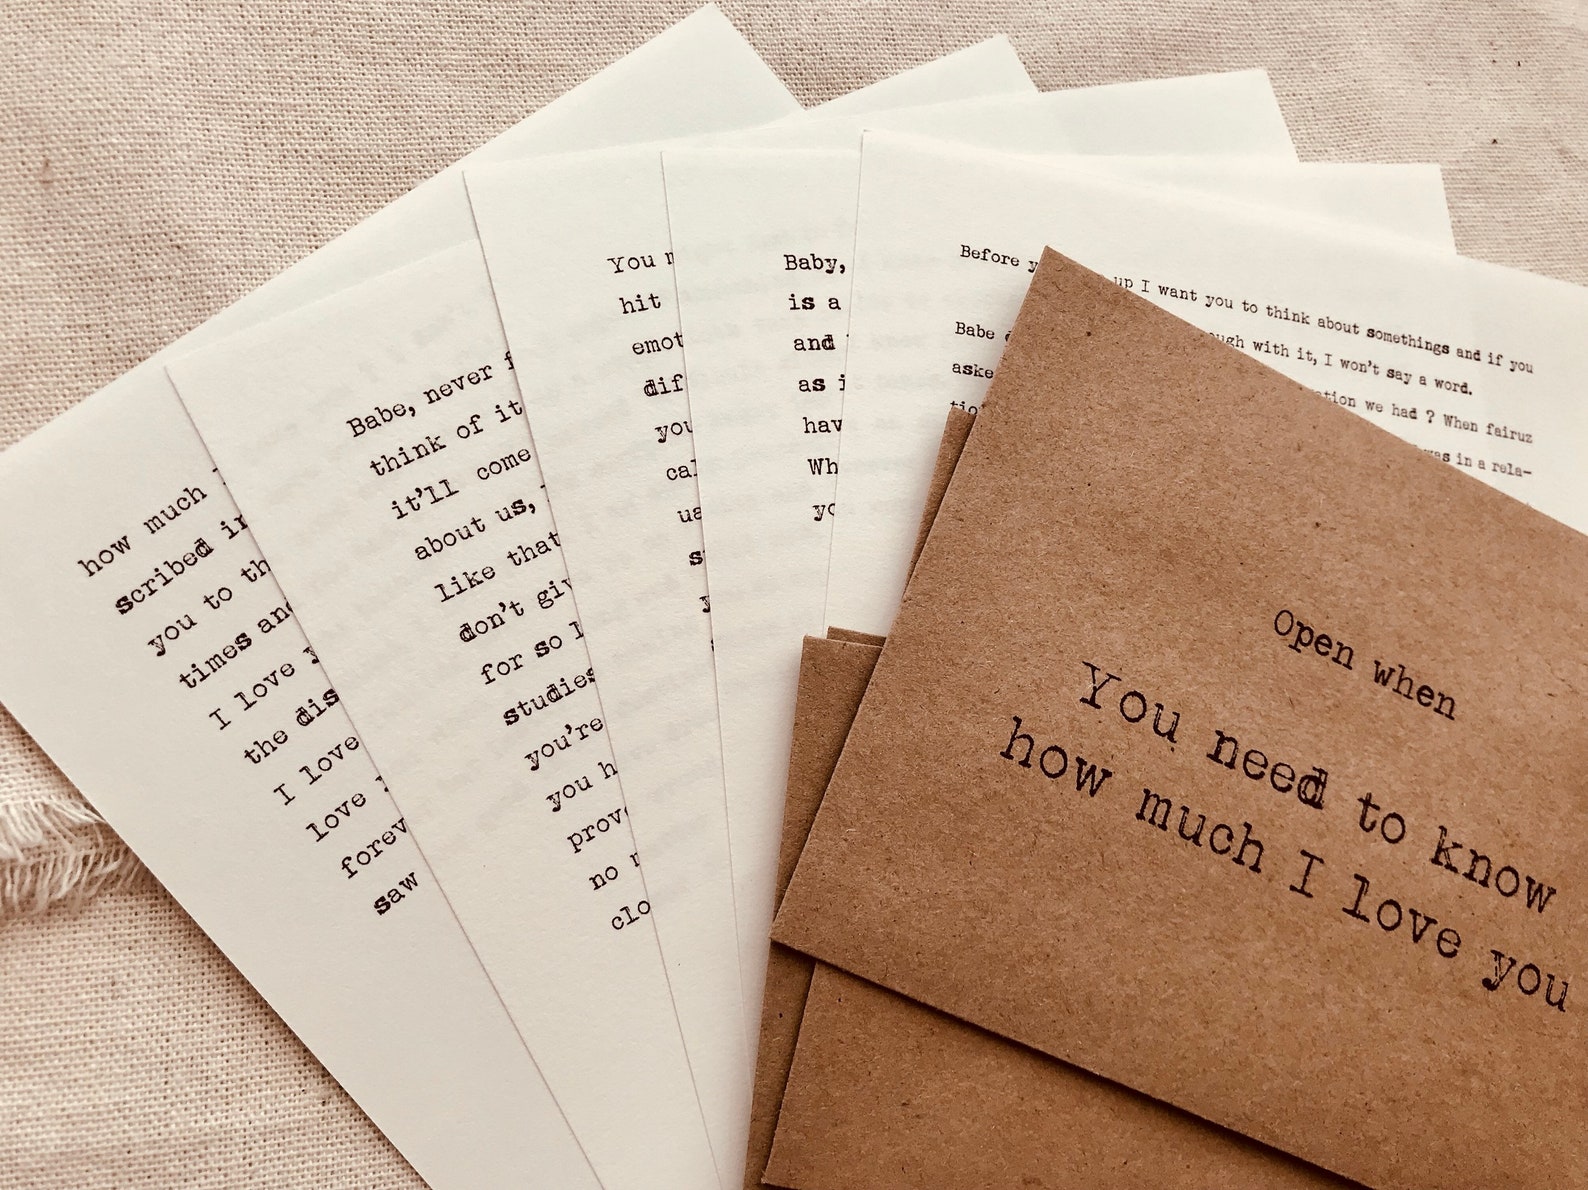 how much
scribed in
you to th
times and
I love y
the dis
I love
love y
forev
saw
Babe, never f
think of it
it'll come
about us,
like that
don't giv
for so l
studies
you're
you h
prov
no n
clo
You n
hit
emot
dif
you
cal
ua
Baby,
is a
and
as i
hav
Wh
yo
Before y up I want you to think about somethings and if you
ugh with it, I won't say a word.
Babe
aske tion we had ? When fairuz
tio was in a rela-
Open when
You need to know
how much I love you